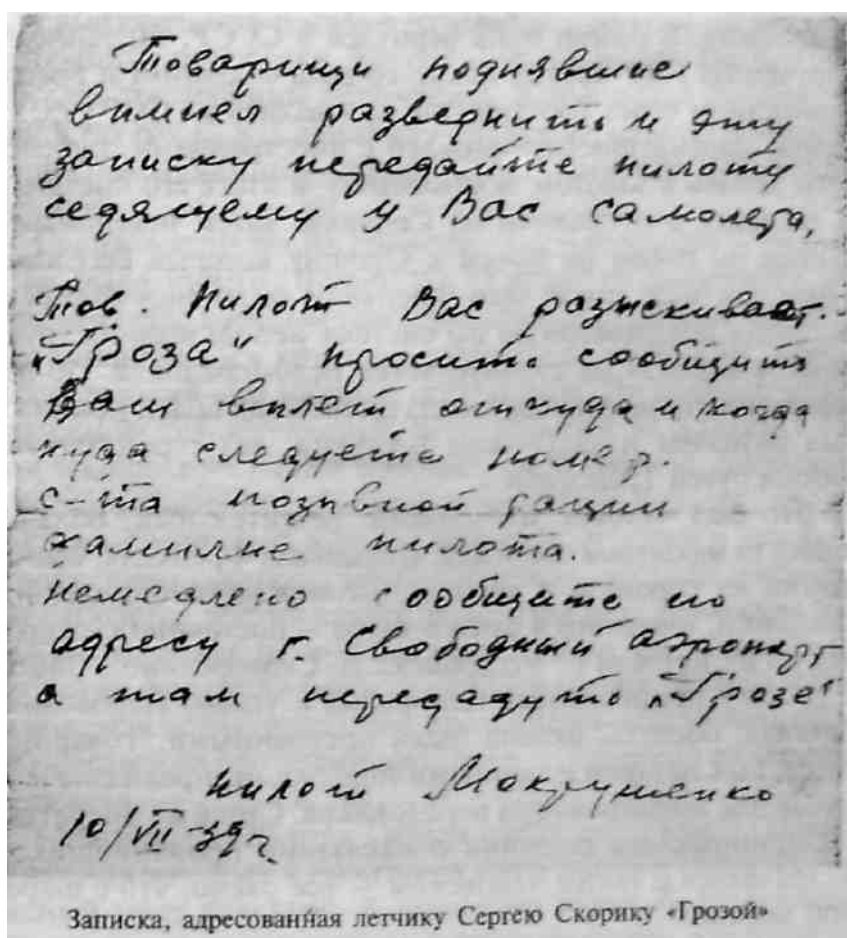 Товарищи поднявшие
вымпел разверните и эту
записку передайте пилоту
седящему у Вас самолета,
Тов. Пилот Вас разыскивает.
„Гроза" просит сообщить
Ваш вылет откуда и когда
куда следуете номер.
с-та позывной рации
фамилие пилота.
немедлено сообщите по
адресу г. Свободный аэропорт
а там передадуть „Грозе"
пилот Мокрушенко
10/VII-39г.
Записка, адресованная летчику Сергею Скорику «Грозой»